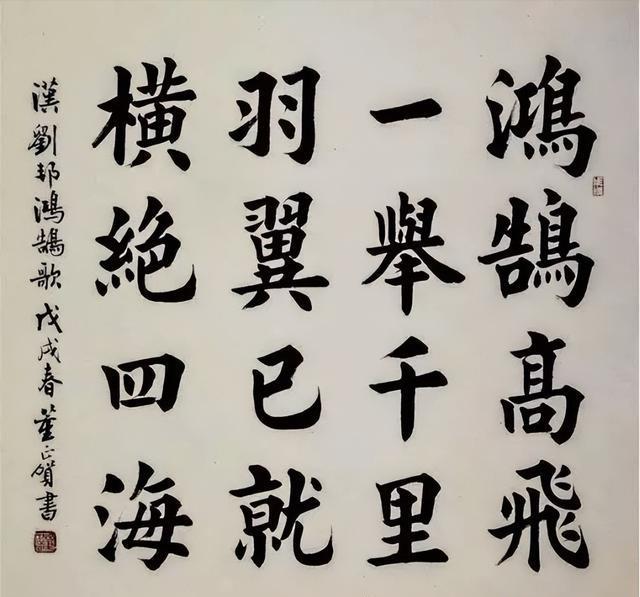 鴻鵠高飛
一舉千里
羽翼已就
橫絕四海
漢劉邦鴻鵠歌戊戌春董正賀書